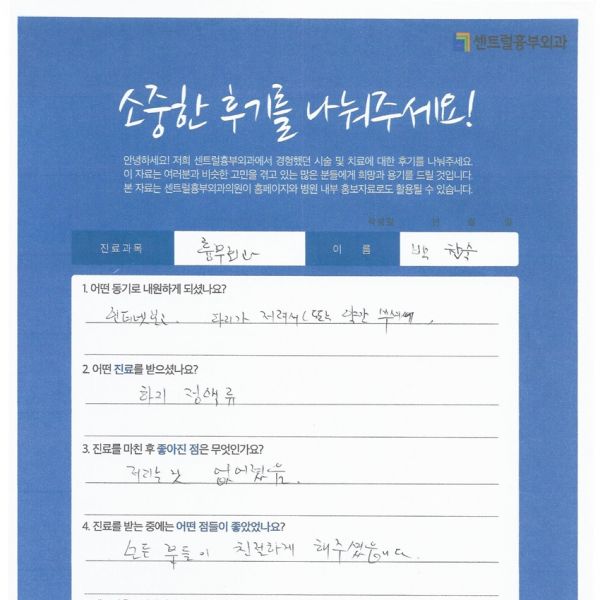 센트럴흉부외과
소중한 후기를 나눠주세요!
안녕하세요! 저희 센트럴흉부외과에서 경험했던 시술 및 치료에 대한 후기를 나눠주세요.
이 자료는 여러분과 비슷한 고민을 겪고 있는 많은 분들에게 희망과 용기를 드릴 것입니다.
본 자료는 센트럴흉부외과의원이 홈페이지와 병원 내부 홍보자료로도 활용될 수 있습니다.
작성일 년 월 일
진료과목 흉부외과 이 름 백
1. 어떤 동기로 내원하게 되셨나요?
인터넷보고. 다리가 저려서 (또는 약간
2. 어떤 진료를 받으셨나요?
하지 정맥류
3. 진료를 마친 후 좋아진 점은 무엇인가요?
저리는 것 없어졌음.
4. 진료를 받는 중에는 어떤 점들이 좋았었나요?
모든 분들이 친절하게 해주셨습니다.